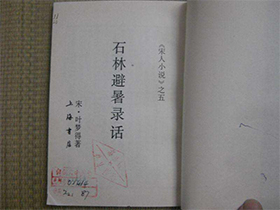 《宋人小说》之五
石林避暑录话
宋·叶梦得著
上海书店